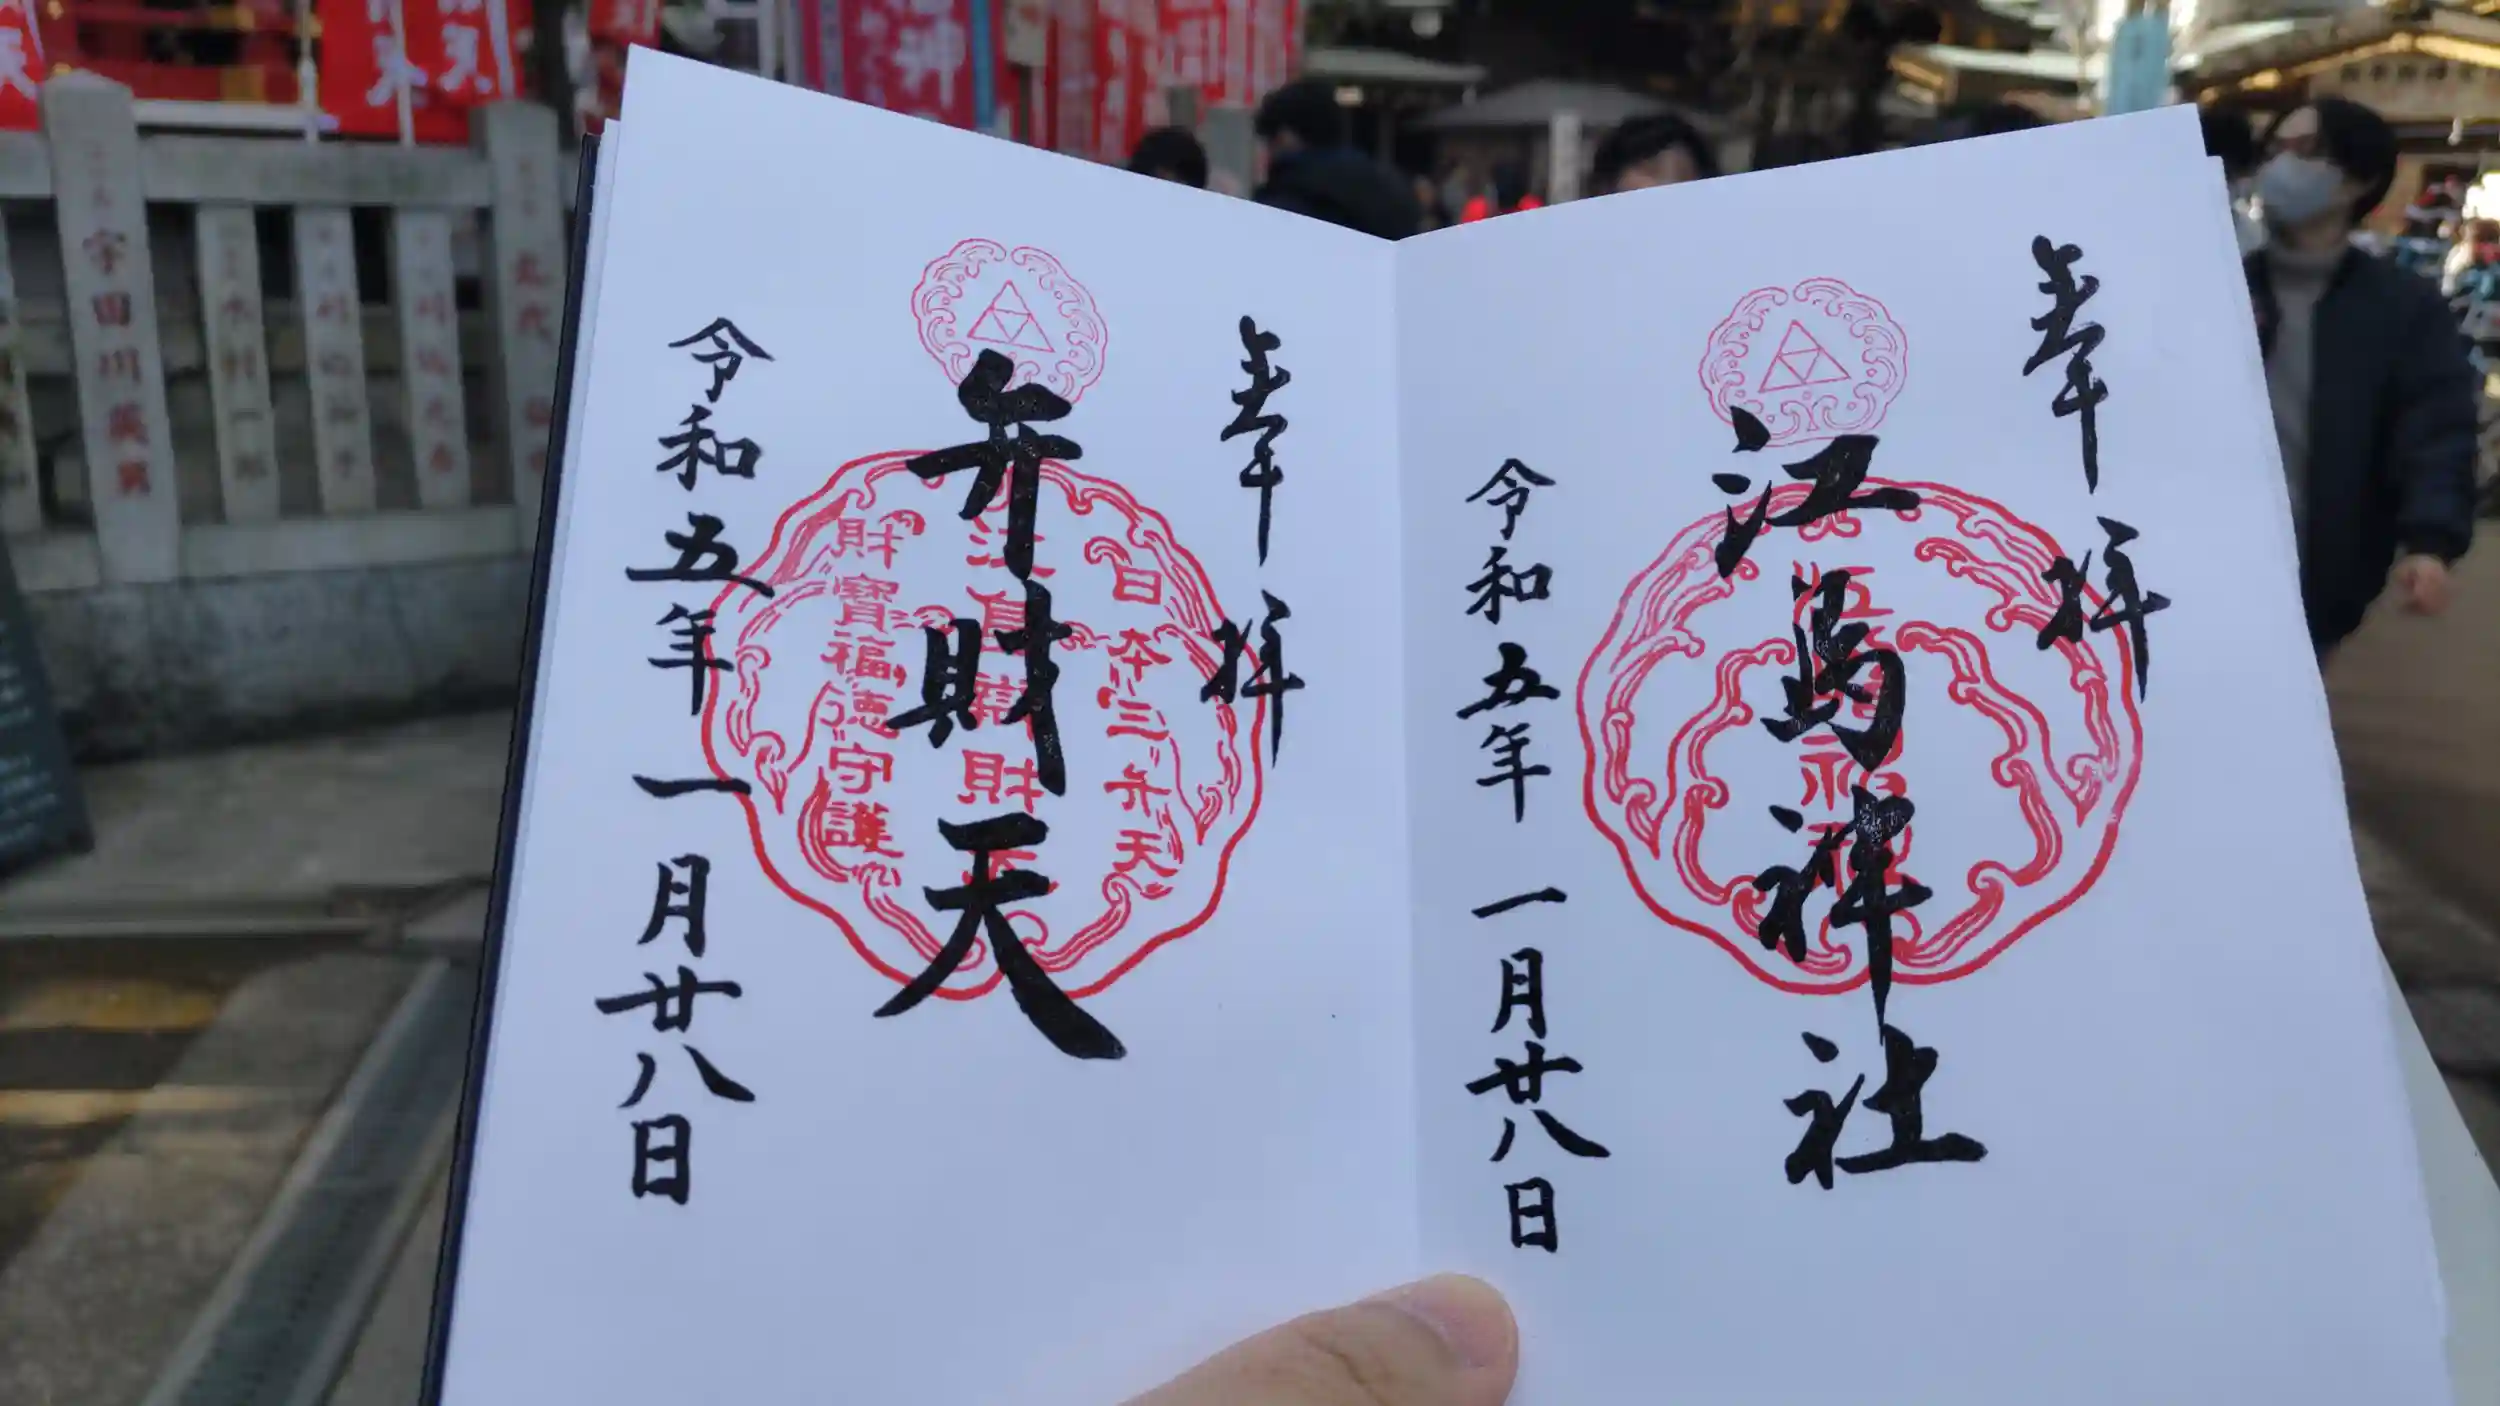 奉拝
江島神社
江島神社
令和五年一月廿八日
奉拝
弁財天
日本三弁天
財寶福徳守護
令和五年一月廿八日
神
宇田川